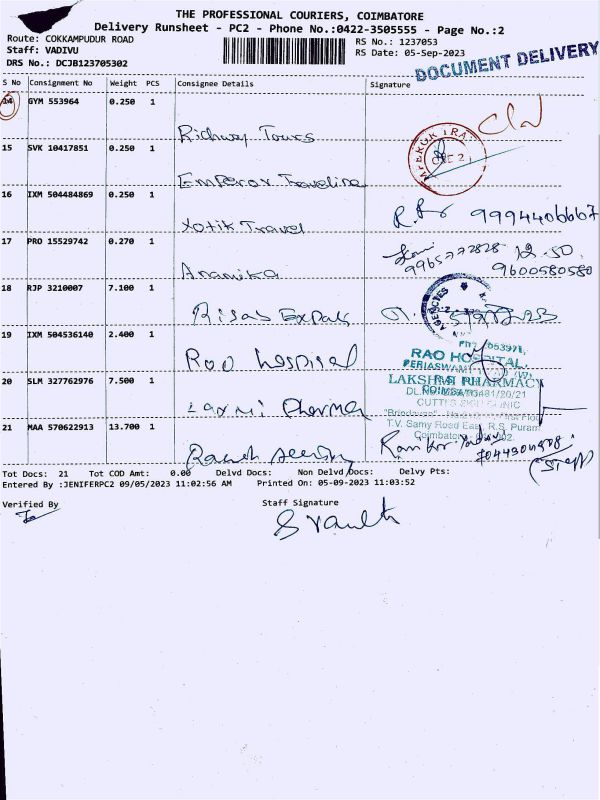 THE PROFESSIONAL COURIERS, COIMBATORE
Delivery Runsheet - PC2 - Phone No.:0422-3505555 - Page No.:2
Route: COKKAMPUDUR ROAD
RS No.: 1237053
Staff: VADIVU
RS Date: 05-Sep-2023
DRS No.: DCJB123705302
DOCUMENT DELIVERY
S No Consignment No Weight PCS Consignee Details Signature
14 GYM 553964 0.250 1
Richway Tours
15 SVK 10417851 0.250 1
Emperor Traveline
16 IXM 504484869 0.250 1
Xotik Travel
9994406667
17 PRO 15529742 0.270 1
Anamika
9965772828 12.50
9600580580
18 RJP 3210007 7.100 1
AGENCIES
19 IXM 504536140 2.400 1
Rao hospital
RAO HOSPITAL
20 SLM 327762976 7.500 1
Laxmi Pharma
LAKSHMI PHARMACY
T.V. Samy Road East, R.S. Puram
Coimbatore
21 MAA 570622913 13.700 1
Ramesh
(Staff)
Tot Docs: 21 Tot COD Amt: 0.00 Delvd Docs: Non Delvd Docs: Delvy Pts:
Entered By :JENIFERPC2 09/05/2023 11:02:56 AM Printed On: 05-09-2023 11:03:52
Verified By
Staff Signature